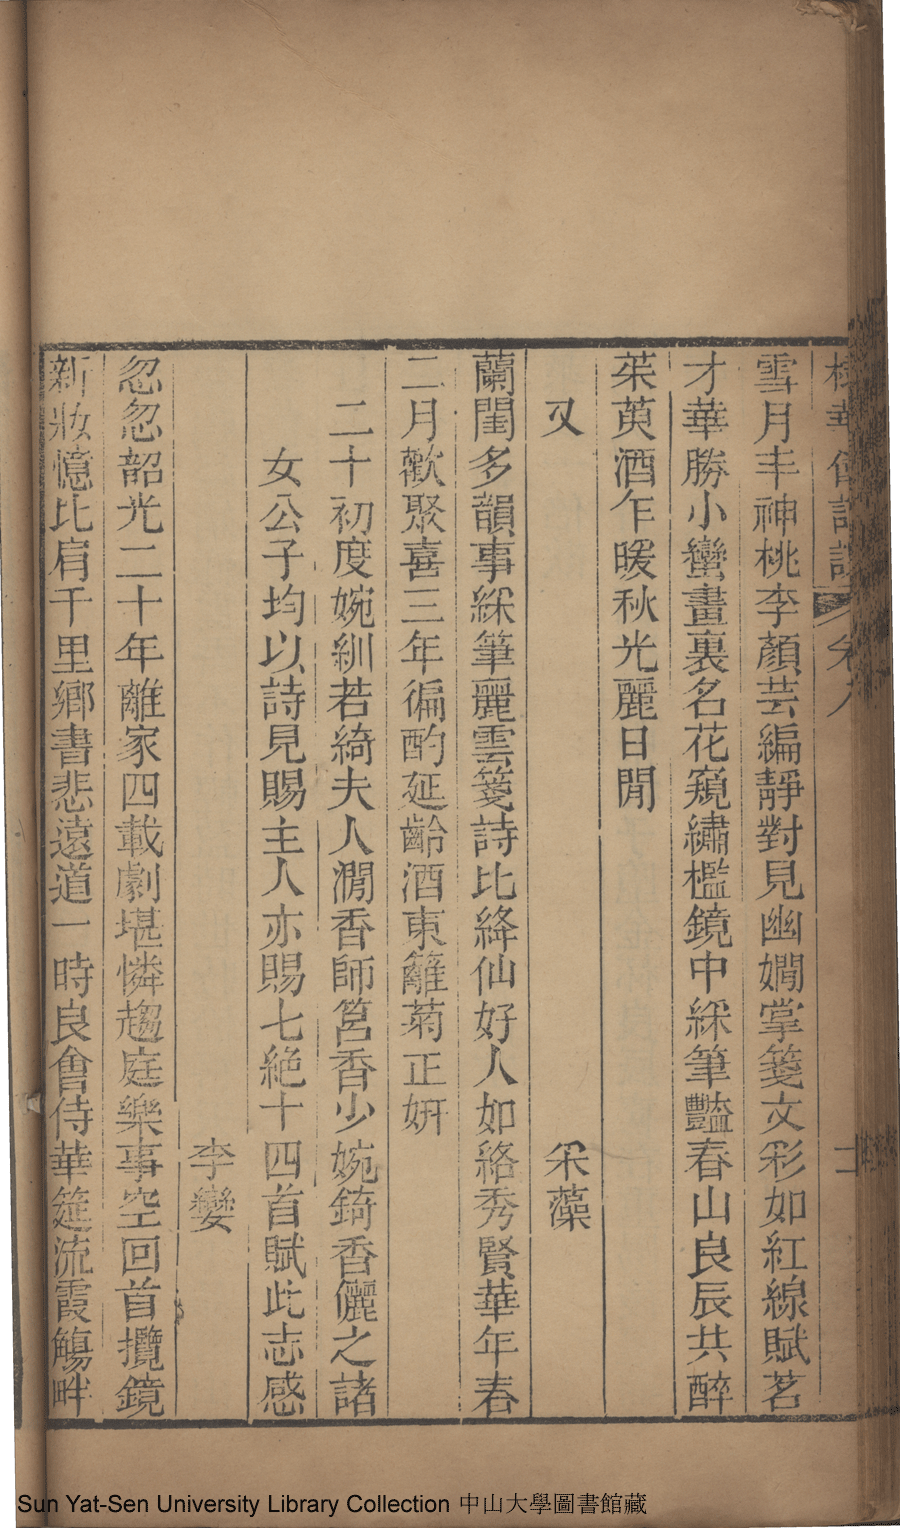 華會詩
雪月丰神桃李顏芸編靜對見幽嫺掌箋文彩如紅線賦茗
才華勝小蠻畫裏名花窺繡檻鏡中綵筆豔春山良辰共醉
茱萸酒乍暖秋光麗日閒
又 采藻
蘭閨多韻事綵筆麗雲箋詩比絳仙好人如絡秀賢華年春
二月歡聚喜三年徧酌延齡酒東籬菊正妍
二十初度婉紃若綺夫人澖香師筥香少婉錡香儷之諸
女公子均以詩見賜主人亦賜七絶十四首賦此志感
李孌
忽忽韶光二十年離家四載劇堪憐趨庭樂事空回首攬鏡
新妝憶比肩千里鄉書悲遠道一時良會侍華筵流霞觴畔
Sun Yat-Sen University Library Collection 中山大學圖書館藏